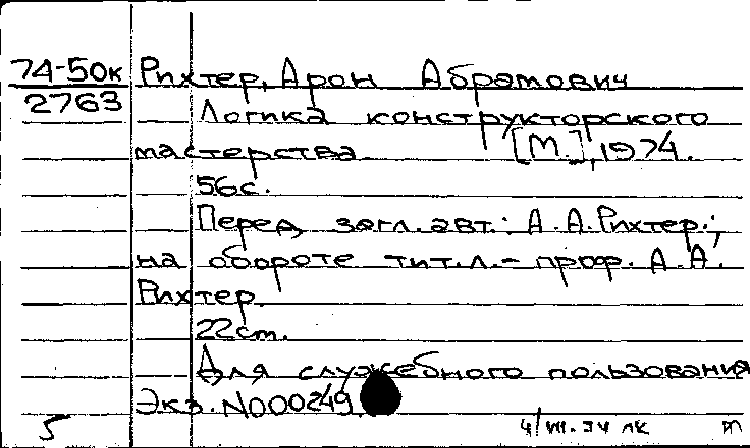 74-50к Рихтер, Арон Абрамович
2763
Логика конструкторского
мастерства [М.], 1974.
56с.
Перед загл. авт.: А.А.Рихтер.;
на обороте тит.л.- проф. А.А.
Рихтер.
22см.
Для служебного пользования
Экз. N000249.
5 4/VII. 74 лк